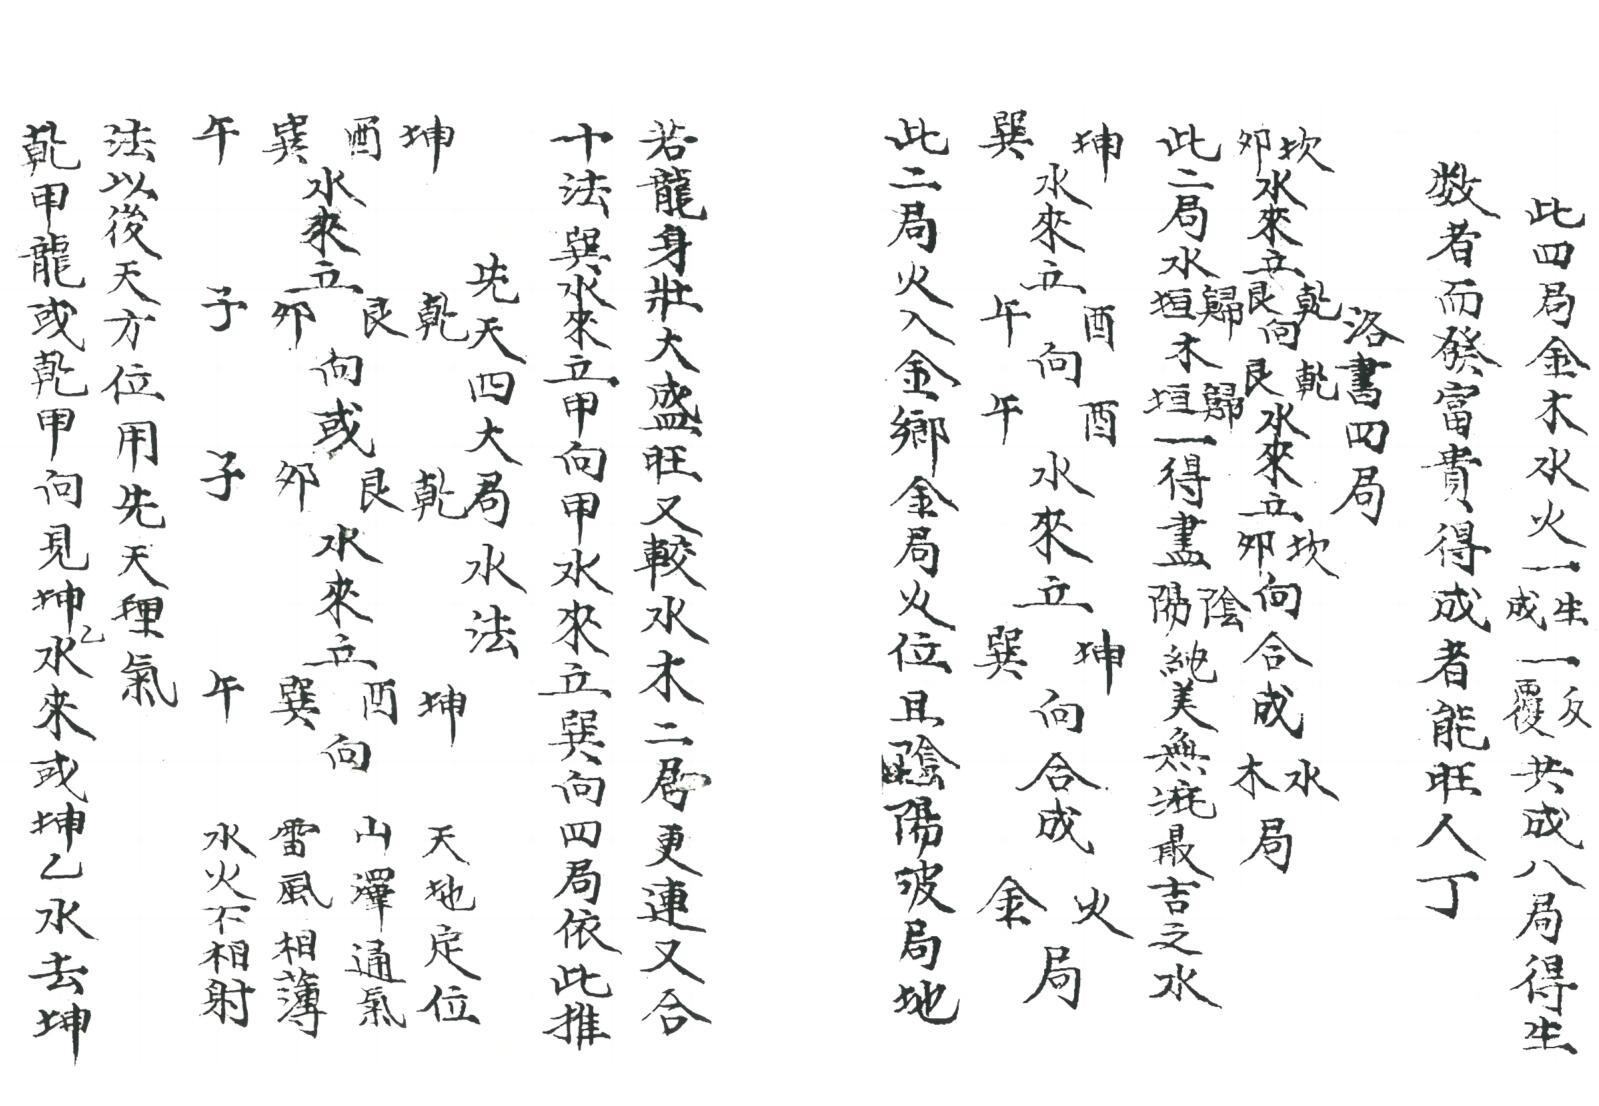 此四局金木水火一生一反共成八局得生
成 覆
数者而發富貴得成者能旺人丁
洛書四局
坎 乾 乾 坎 水
水來立 向 水來立 向合成 局
卯 艮 艮 卯 木
此二局水歸木歸一得盡陰純美無疵最吉之水
垣 垣 陽
坤 酉 酉 坤 火
水來立 向 水來立 向合成 局
巽 午 午 巽 金
此二局火入金鄉金局火位且陰陽破局地
若龍身壯大盛旺又較水木二局更連又合
十法巽水來立甲向甲水來立巽向四局依此推
先天四大局水法
坤 乾 乾 坤 天地定位
酉 艮 艮 酉 山澤通氣
水來立 向或 水來立 向
巽 卯 卯 巽 雷風相薄
午 子 子 午 水火不相射
法以後天方位用先天理氣
乾甲龍或乾甲向見坤乙水來或坤乙水去坤